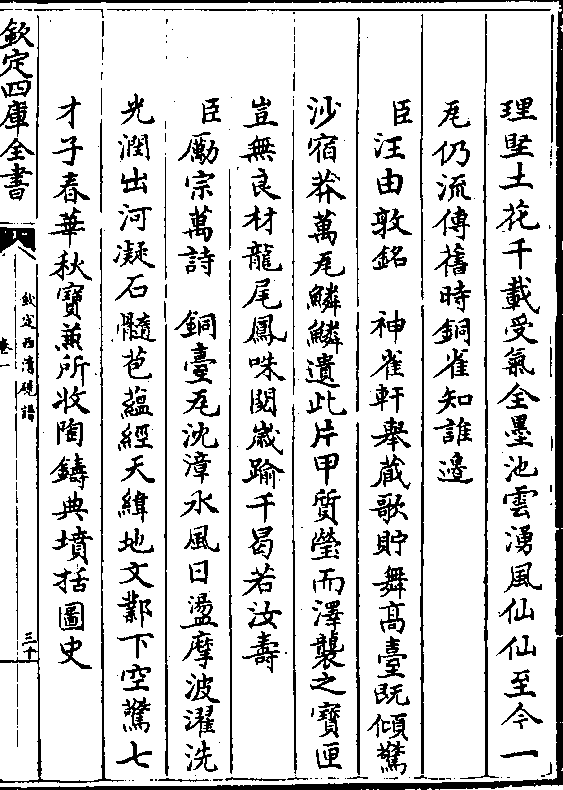 理堅土花千載受氣全墨池雲湧風仙仙至今一
瓦仍流傳舊時銅雀知誰邊
臣汪由敦銘　神雀軒舉蔵歌貯舞髙臺既傾驚
沙宿莽萬瓦鱗鱗遺此片甲質瑩而澤襲之寳匣
豈無良材龍尾鳳咮閱嵗踰千曷若汝壽
臣勵宗萬詩　銅臺瓦沈漳水風日盪摩波濯洗
光潤出河凝石髓苞蘊經天緯地文鄴下空驚七
才子春華秋寳兼所收陶鑄典墳括圖史
欽定四庫全書
欽定西清硯譜
卷一
三十